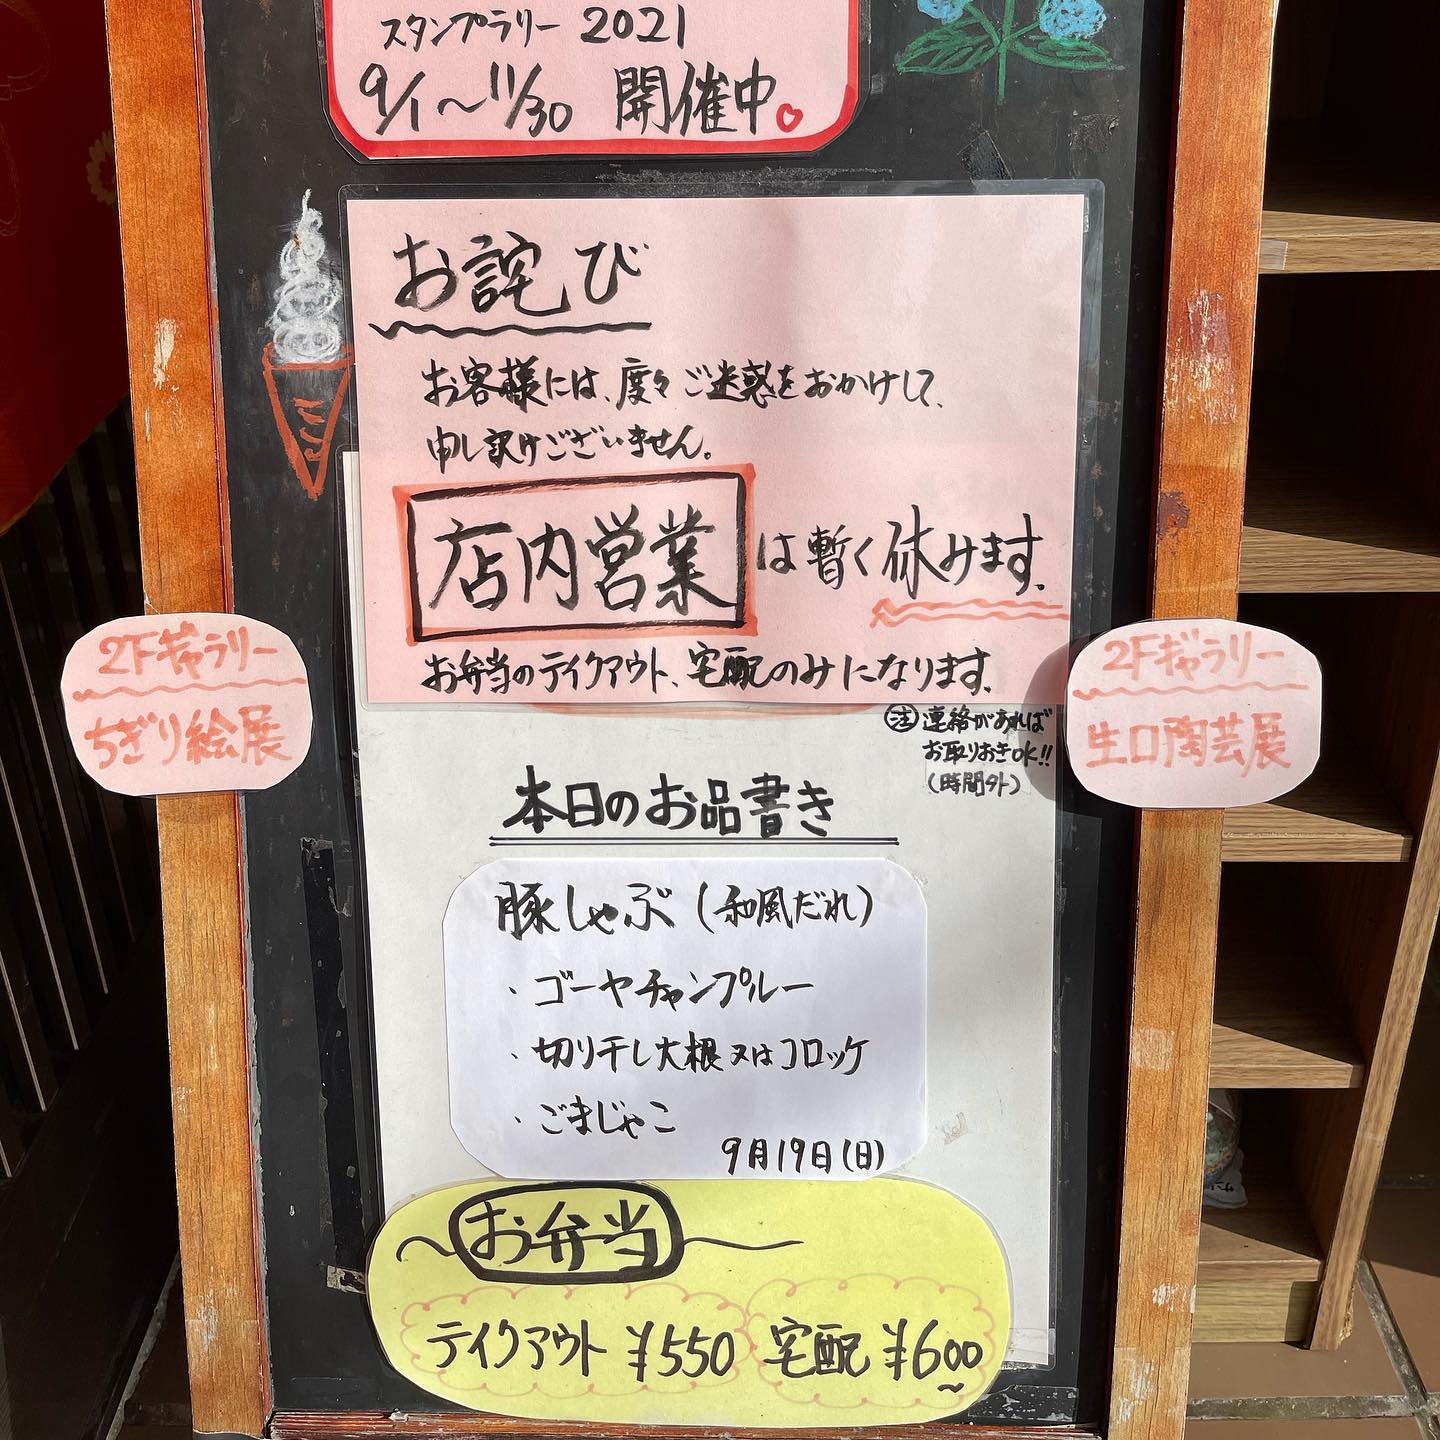 スタンプラリー 2021
9/1〜11/30 開催中。
お詫び
お客様には、度々ご迷惑をおかけして、
申し訳けございません。
店内営業は暫く休みます。
お弁当のテイクアウト、宅配のみになります。
注 連絡があれば
お取りおきOK!!
(時間外)
2Fギャラリー
ちぎり絵展
2Fギャラリー
生口陶芸展
本日のお品書き
豚しゃぶ(和風だれ)
・ゴーヤチャンプルー
・切り干し大根又はコロッケ
・ごまじゃこ
9月19日(日)
お弁当
テイクアウト ¥550 宅配 ¥600〜